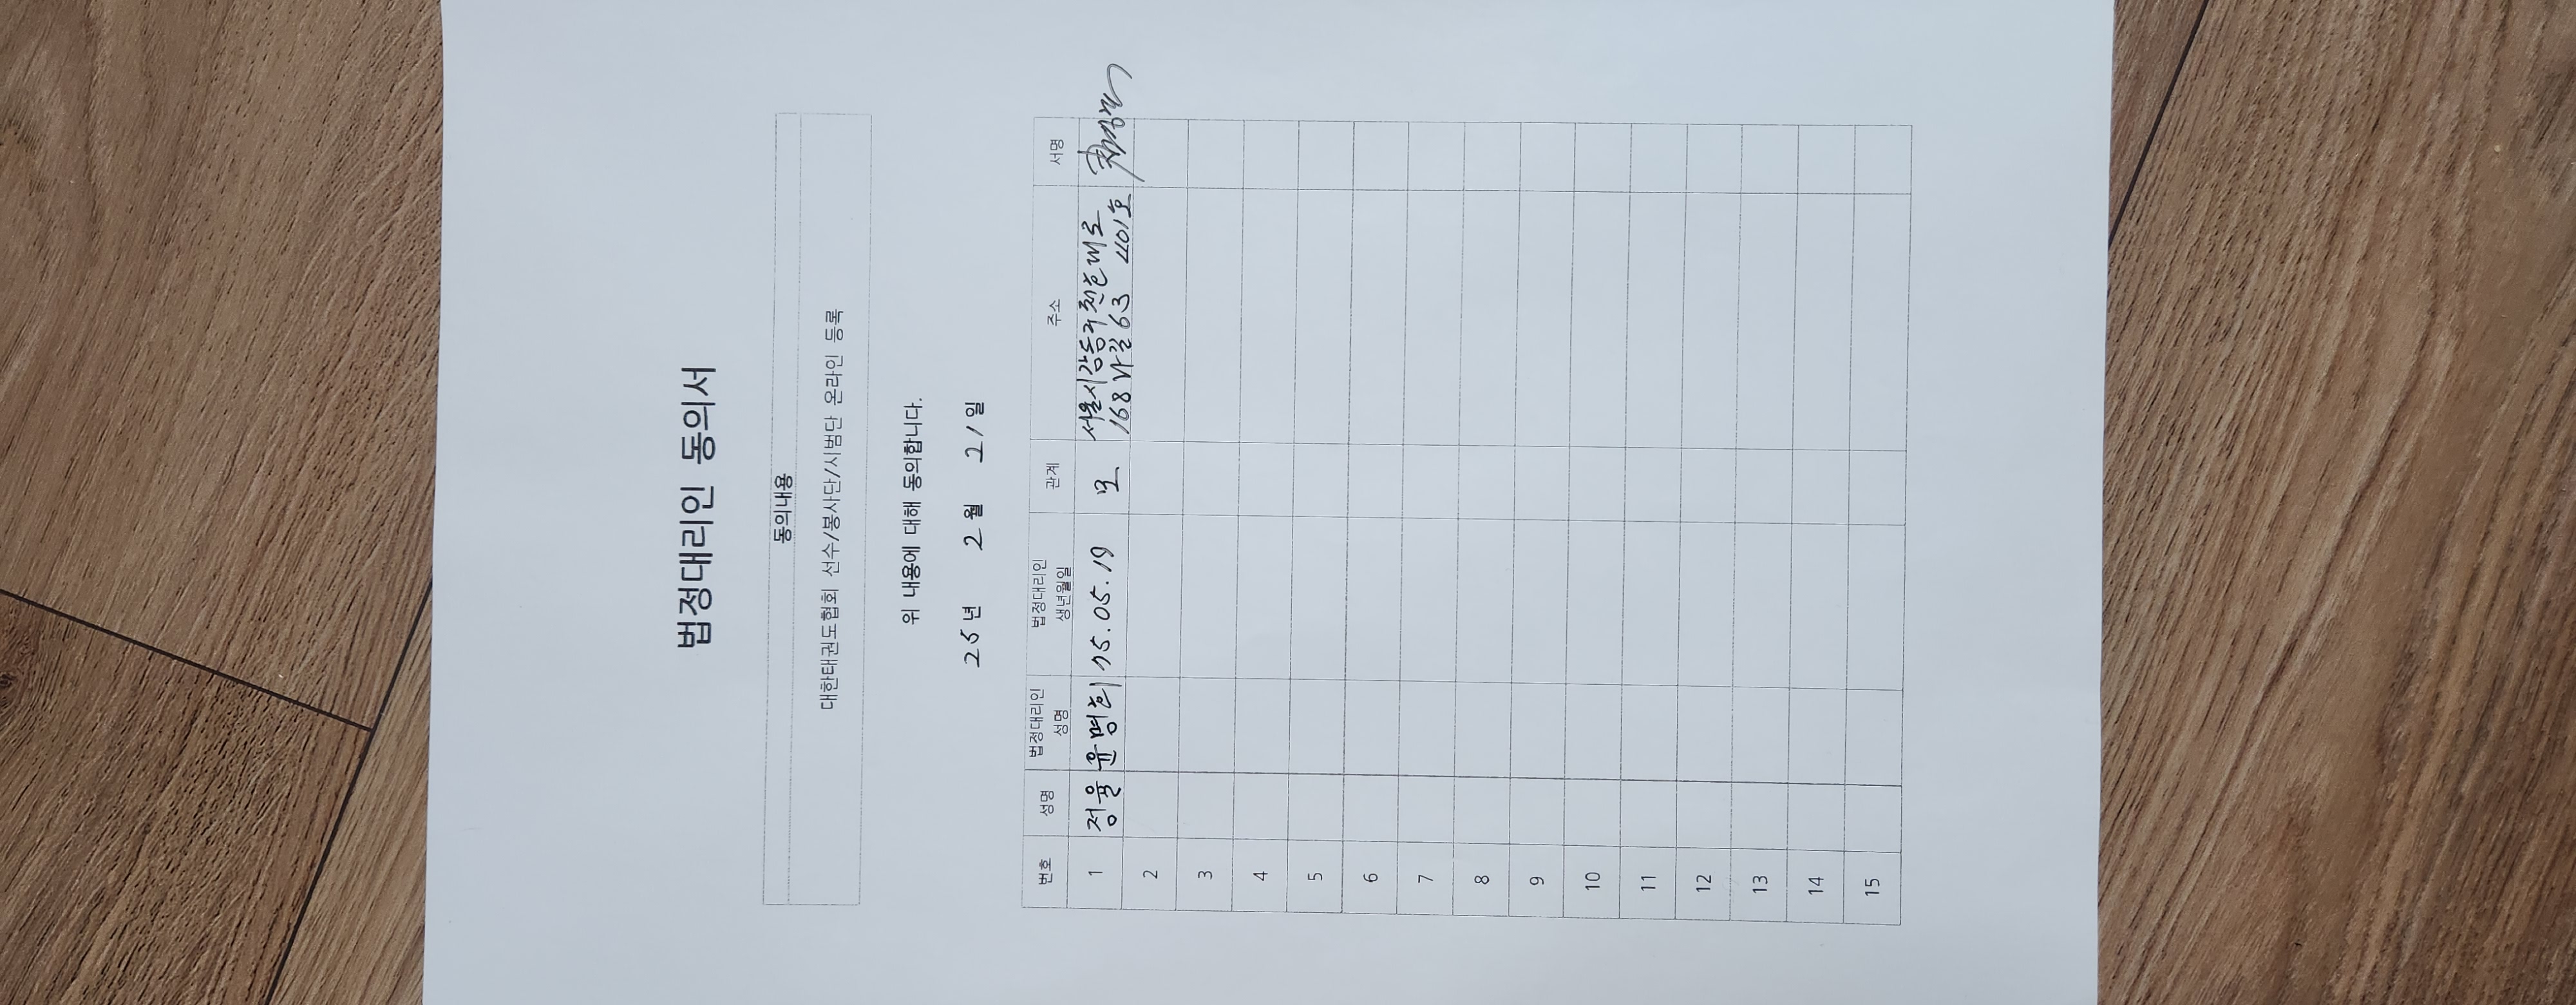 법정대리인 동의서
동의내용
대한태권도협회 선수/봉사단/시범단 온라인 등록
위 내용에 대해 동의합니다.
25년 2월 21일
번호 성명 법정대리인 성명 법정대리인 생년월일 관계 주소 서명
1 정율 윤명희 75.05.19 모 서울시강동구천호대로
168가길 63 401호
2
3
4
5
6
7
8
9
10
11
12
13
14
15